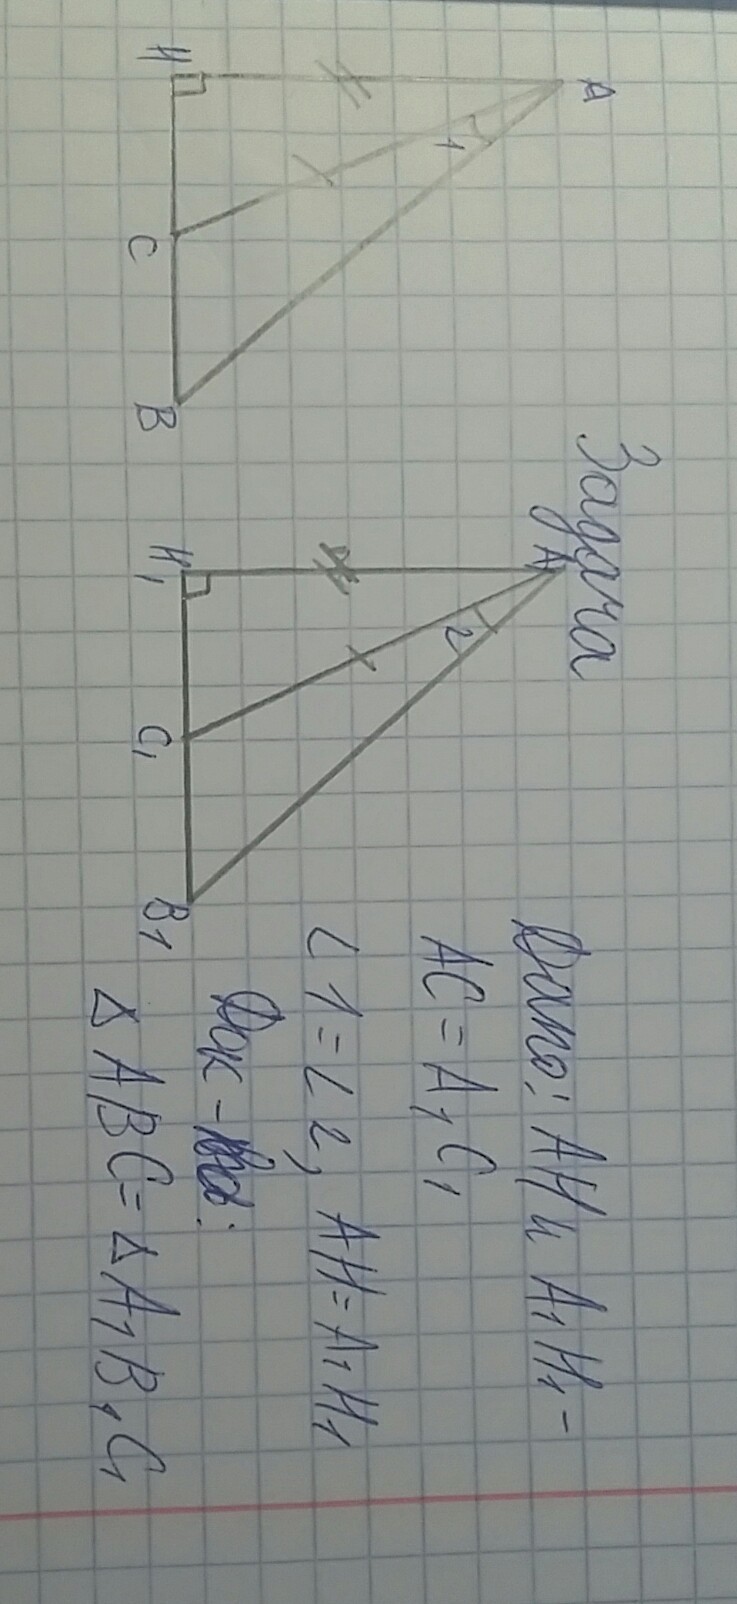 Задача
A
1
H
C
B
A
2
H1
C1
B1
Дано: AH и A1H1-
AC = A1C1
∠1=∠2, AH=A1H1
Док-во:
Δ ABC = Δ A1B1C1